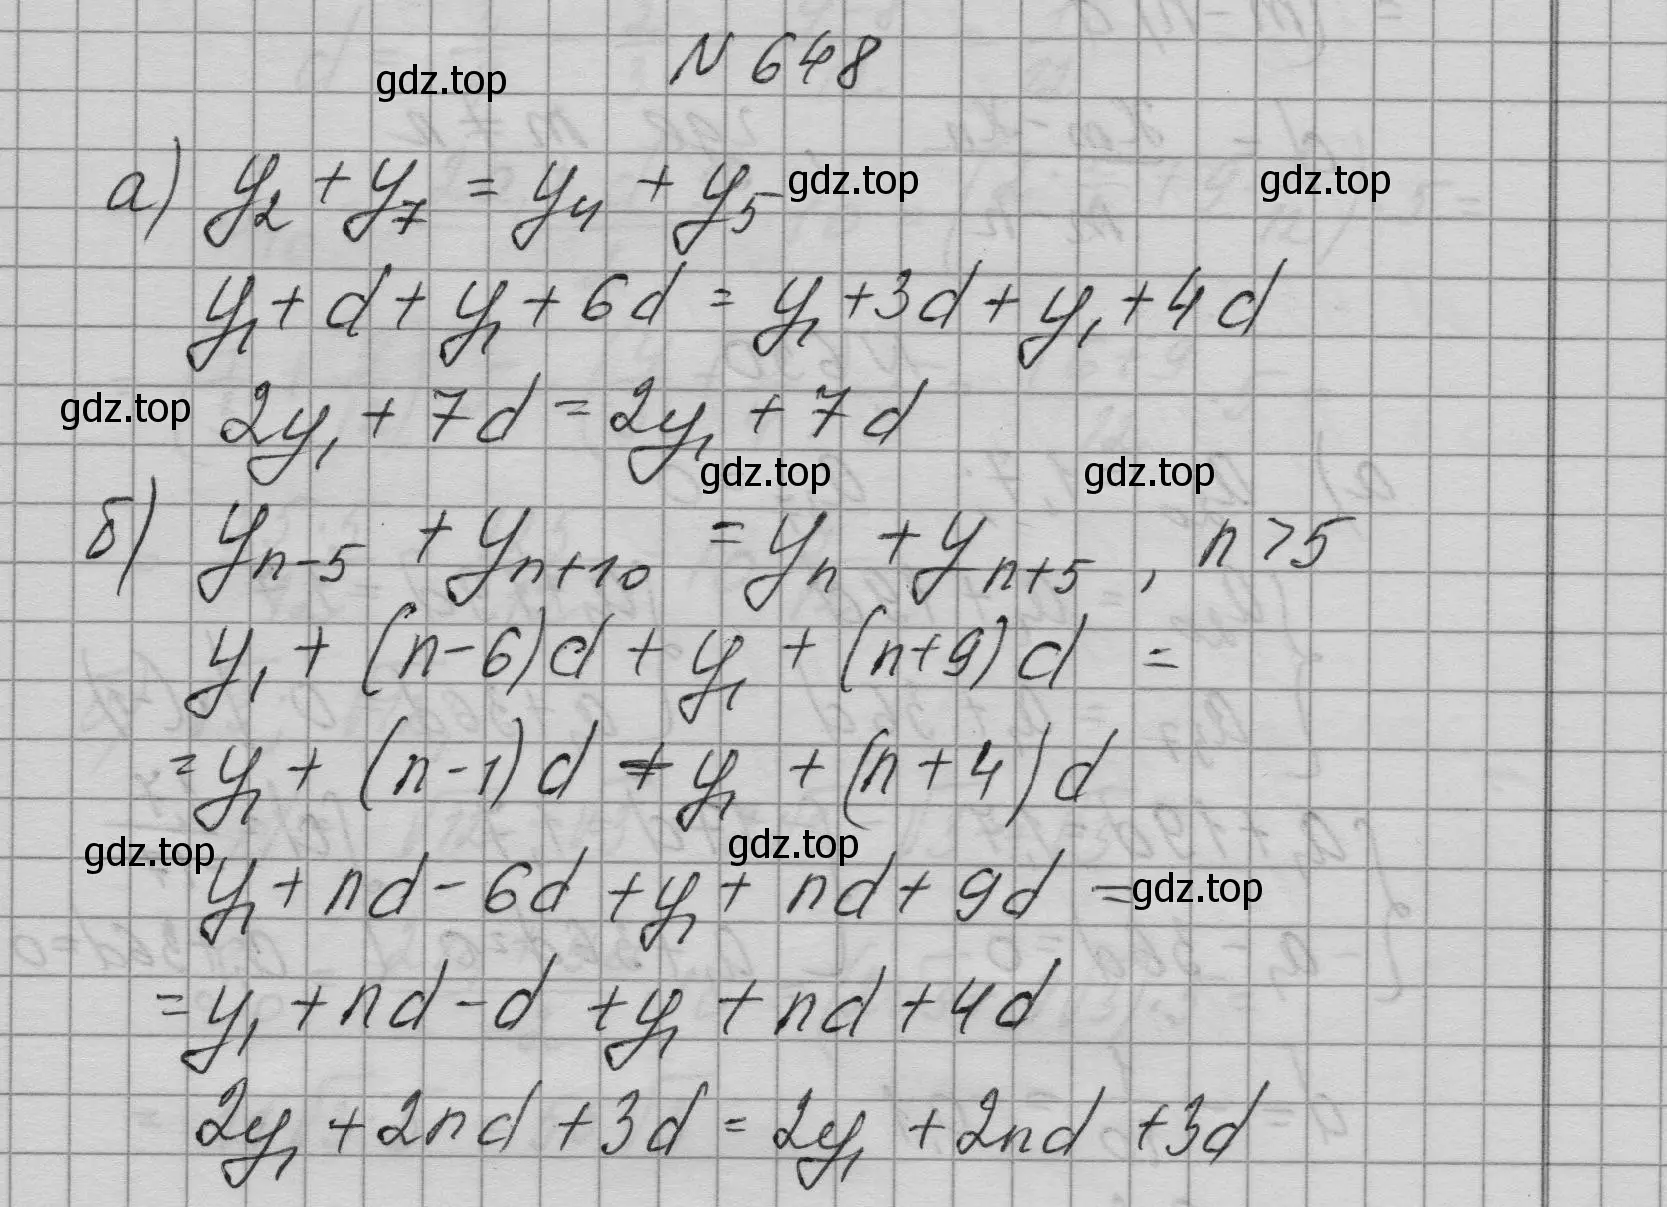 N 648
gdz.top
а) y₂ + y₇ = y₄ + y₅
gdz.top
gdz.top
y₁ + d + y₁ + 6d = y₁ + 3d + y₁ + 4d
gdz.top
2y₁ + 7d = 2y₁ + 7d
gdz.top
gdz.top
б) yₙ₋₅ + yₙ₊₁₀ = yₙ + yₙ₊₅ , n > 5
y₁ + (n-6)d + y₁ + (n+9)d =
= y₁ + (n-1)d + y₁ + (n+4)d
gdz.top
gdz.top
y₁ + nd - 6d + y₁ + nd + 9d =
gdz.top
= y₁ + nd - d + y₁ + nd + 4d
2y₁ + 2nd + 3d = 2y₁ + 2nd + 3d